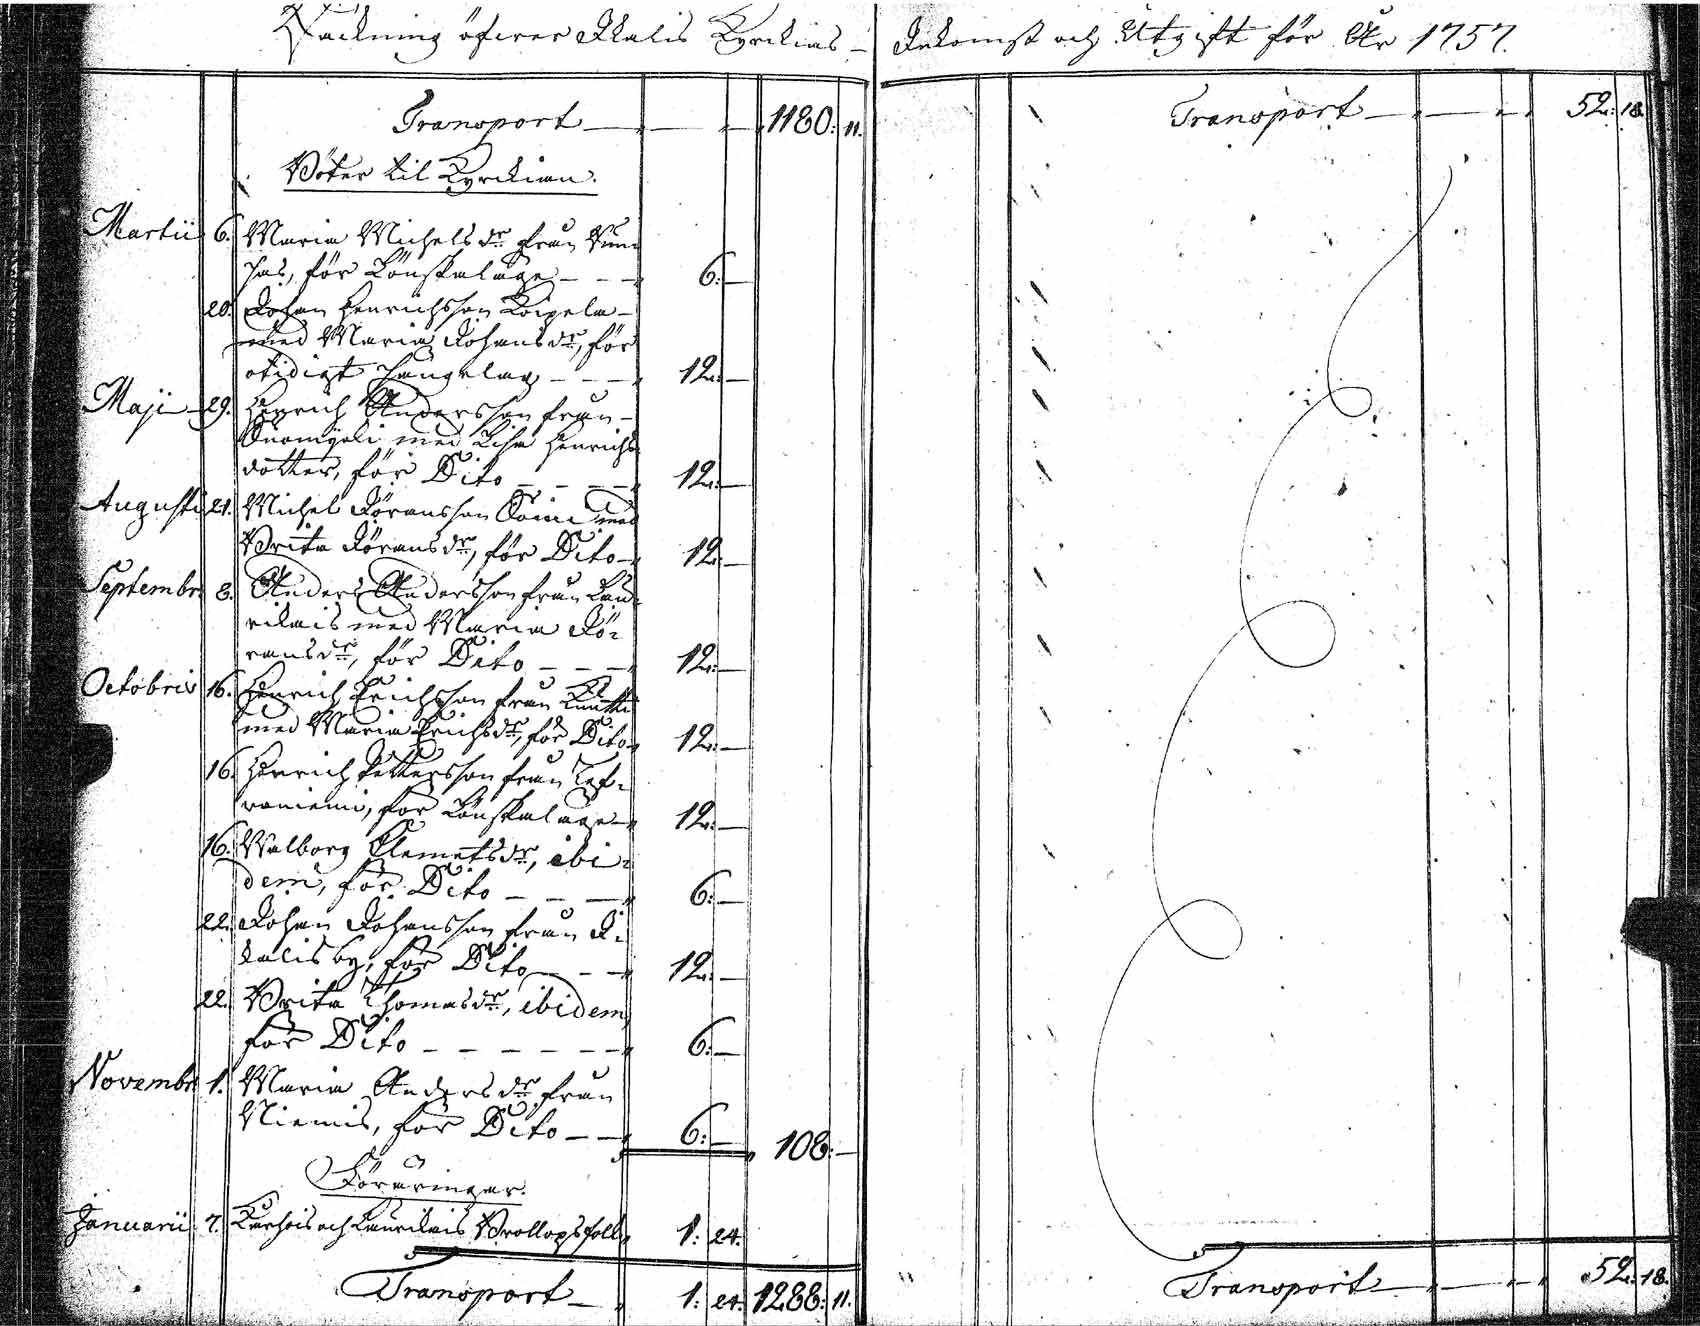 Räckning öfwer Ikalis Kyrckias – Inkomst och Utgift för År 1757.
Transport — 1180: 11.
Böter til Kyrckian.
Martii 6. Maria Michelsdr från
för Lönskaläge – – – 6: —
20. Johan Henrichsson Koipela –
med Maria Johansdr, för
otidigt Sängelag – – – 12: —
Maji – 29. Henrich Andersson från –
med Lisa Henrichs
dotter, för Dito – – – – 12: —
Augusti 21. Michel Göransson med
Brita Göransdr, för Dito – 12: —
Septembr. 8. Anders Andersson från Lau-
rikais med Maria Gö-
ransdr, för Dito – – – 12: —
Octobris 16. Henrich Erichsson från
med Maria Erichsdr, för Dito 12: —
16. Henrich Pettersson från
för Lönskaläge – 12: —
16. Walborg Clemetsdr, ibi-
dem, för Dito – – – – 6: —
22. Johan Johansson från I-
kalis by, för Dito – – – 12: —
22. Brita Thomasdr, ibidem,
för Dito – – – – – – 6: —
Novembr. 1. Maria Andersdr från
Niemis, för Dito – – 6: — 108: —
Föräringar.
Januarii 7. och Laurikais Brollopsfolk 1: 24.
Transport – 1: 24. 1288: 11.
Transport — 52: 18.
Transport — 52: 18.